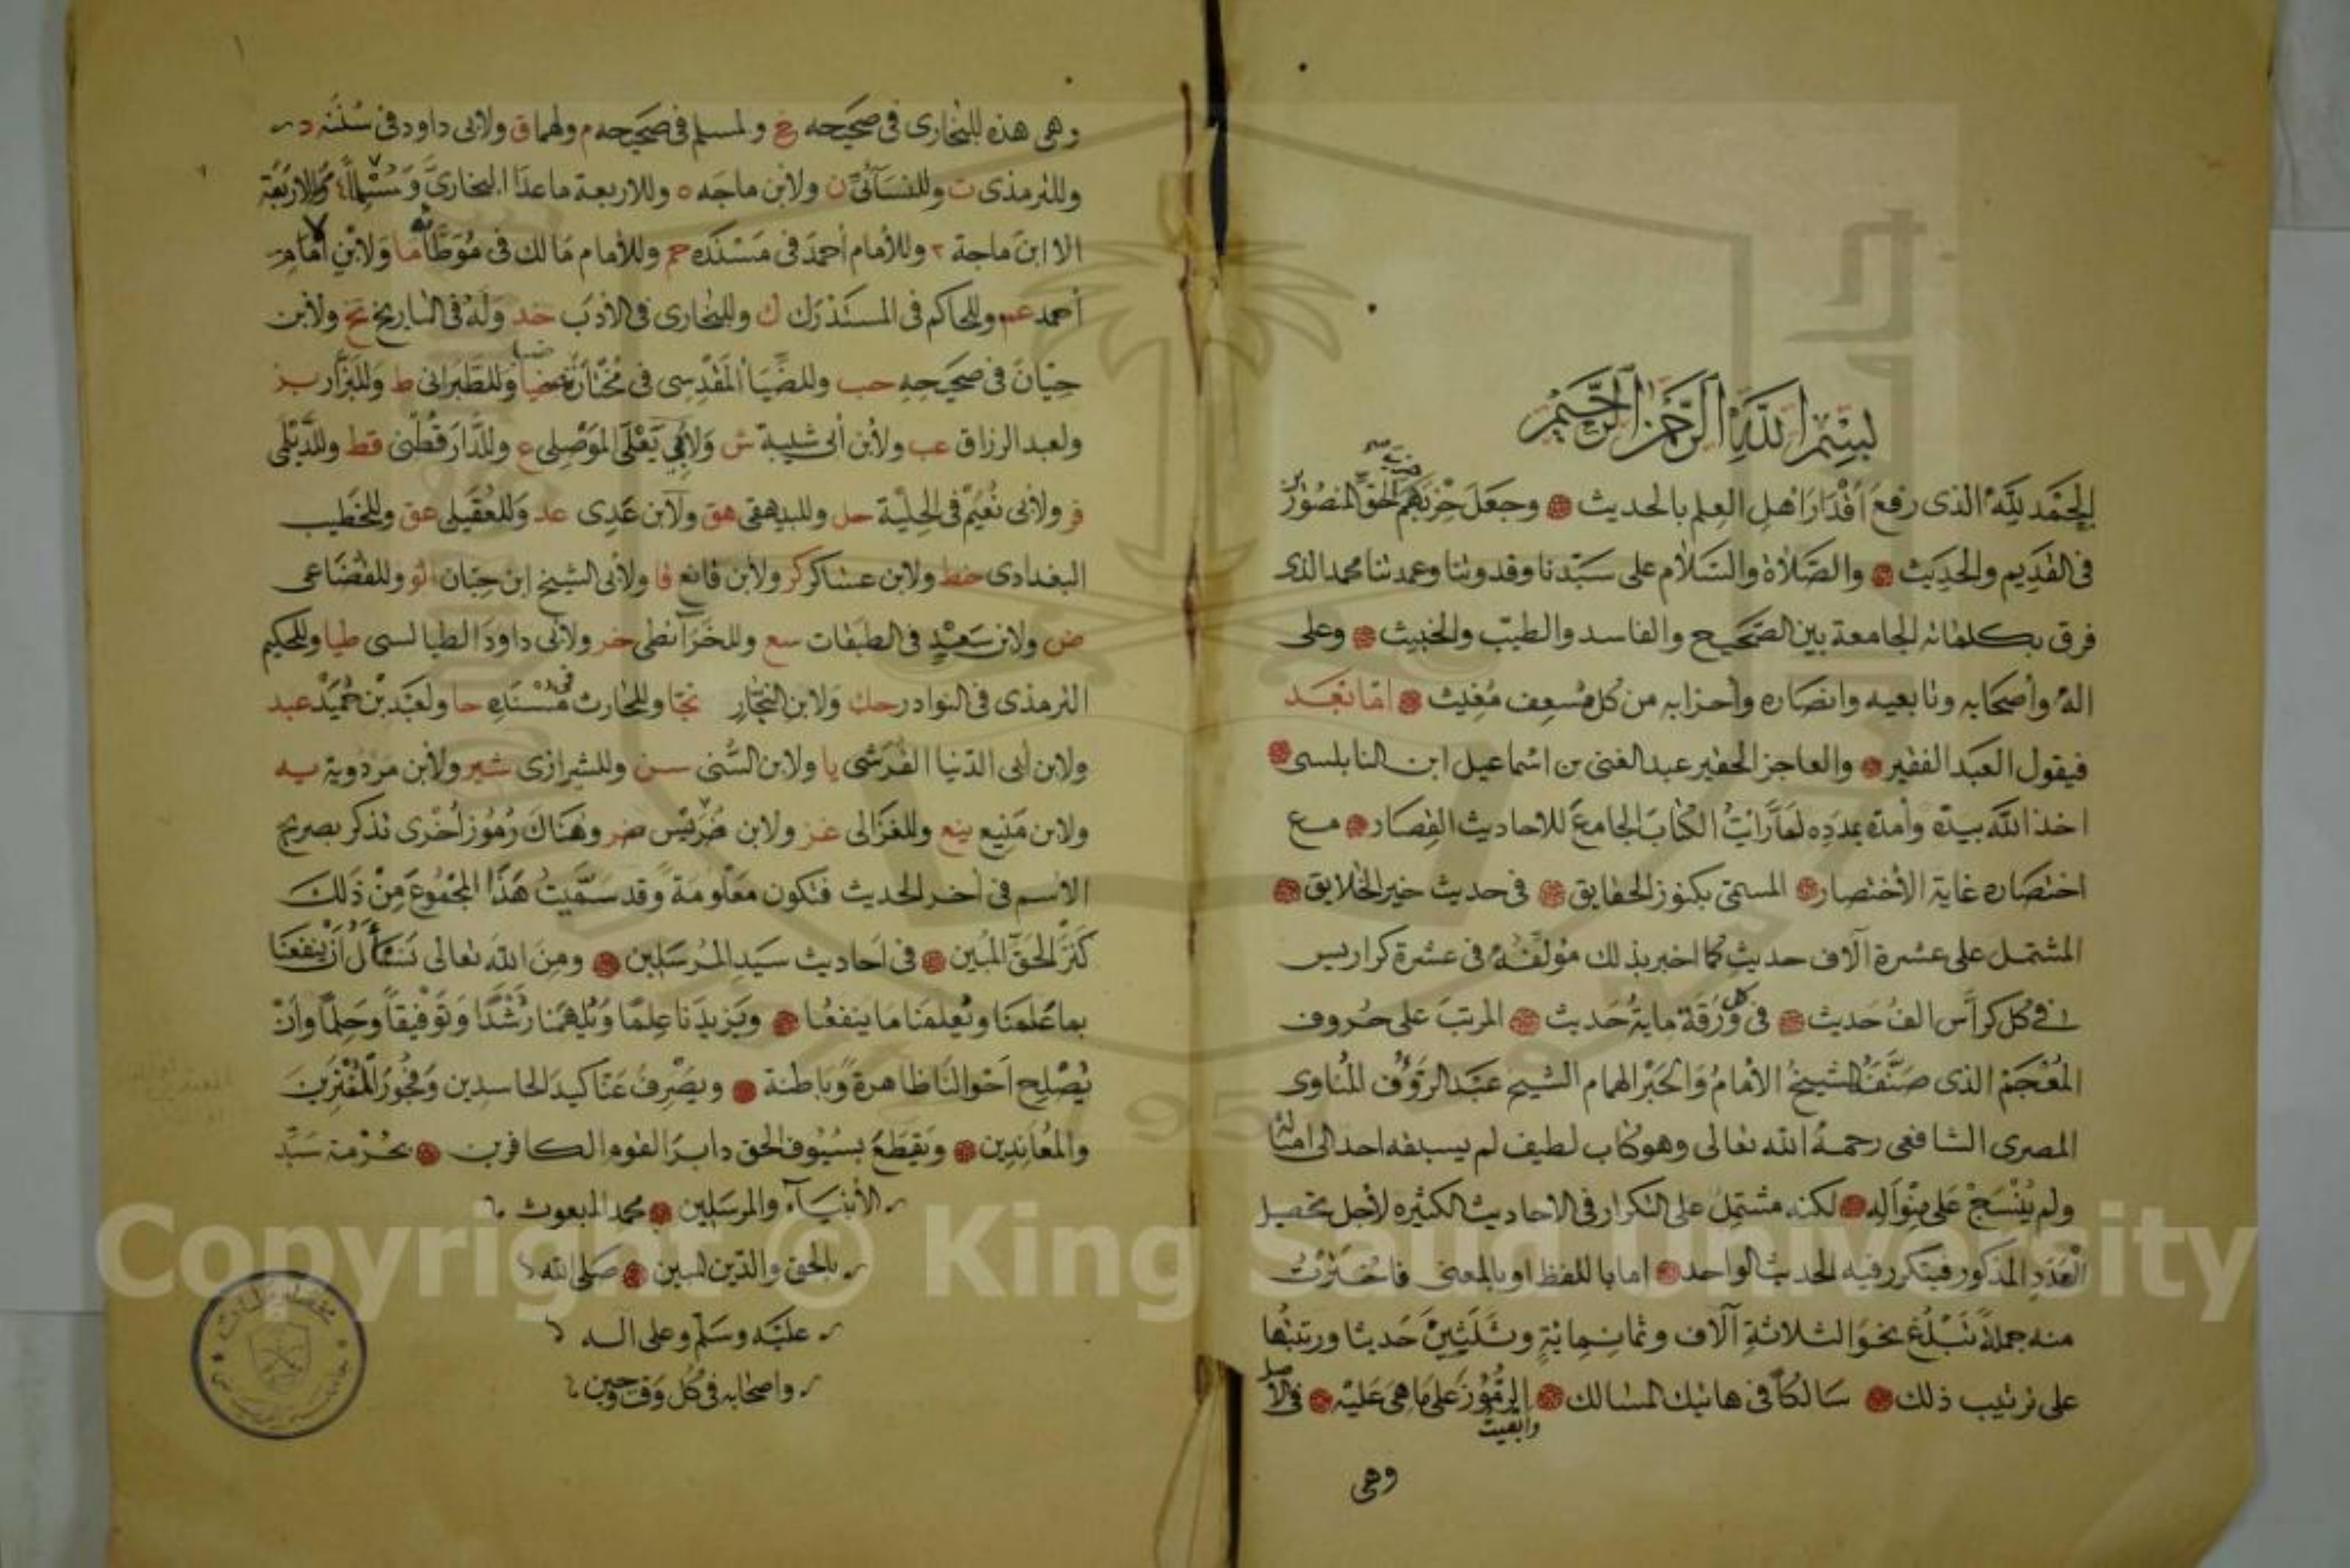 بسم الله الرحمن الرحيم
الحمد لله الذى رفع اقدار اهل العلم بالحديث وجعل حزبهم الحق المنصور
فى القديم والحديث والصلاة والسلام على سيدنا وقدوتنا وعمدتنا محمد الذى
فرق بكلماته الجامعة بين الصحيح والفاسد والطيب والخبيث وعلى
اله وأصحابه وتابعيه وانصاره وأحزابه من كل مسعف مغيث اما بعد
فيقول العبد الفقير والعاجز الحقير عبد الغنى بن اسماعيل ابن النابلسى
اخذ الله بيده وأمده بمدده لما رايت الكتاب الجامع للاحاديث القصار مع
اختصاره غاية الأختصار المسمى بكنوز الحقايق فى حديث خير الخلايق
المشتمل على عشرة آلاف حديث كما اخبر بذلك مؤلفه فى عشرة كراريس
فى كل كراس الف حديث فى كل ورقة ماية حديث المرتب على حروف
المعجم الذى صنفه الشيخ الأمام والحبر الهمام الشيخ عبد الرؤف المناوى
المصرى الشافعى رحمه الله تعالى وهو كتاب لطيف لم يسبقه احد الى امثاله
ولم ينسج على منواله لكنه مشتمل على التكرار فى الاحاديث الكثيره لأجل تحصيل
العدد المذكور فيتكرر فيه الحديث الواحد اما باللفظ او بالمعنى فاختزت
منه جملة تبلغ نحو الثلاثة آلاف وثمانماية وثلثين حديثا ورتبتها
على ترتيب ذلك سالكا فى هاتيك المسالك وابقيت الرموز على ما هى عليه فى الاصل
وهى
وهى هذه للبخارى فى صحيحه خ ولمسلم فى صحيحه م ولهما ق ولابى داود فى سننه د
وللترمذى ت وللنسآئى ن ولابن ماجه ه وللاربعة ما عدا البخارى ومسلما ٤ وللاربعة
الا ابن ماجة ٣ وللأمام أحمد فى مسنده حم وللأمام مالك فى موطائه ما ولابن امام
أحمد عم وللحاكم فى المستدرك ك وللبخارى فى الأدب خد وله فى التاريخ تخ ولأبن
حبان فى صحيحه حب وللضيا المقدسى فى مختارته ضيا وللطبرانى ط وللبزار بز
ولعبد الرزاق عب ولأبن أبى شيبة ش ولأبى يعلى الموصلى ع وللدارقطنى قط وللديلمى
فر ولأبى نعيم فى الحلية حل وللبيهقى هق ولآبن عدى عد وللعقيلى عق وللخطيب
البغدادى خط ولابن عساكر كر ولأبن قانع قا ولأبى الشيخ ابن حبان الو وللقضاعى
ض ولابن سعيد فى الطبقات سع وللخرآئطى خر ولأبى داود الطيالسى طيا وللحكيم
الترمذى فى النوادر حك ولابن النجار نجا وللحارث فى مسنده حا ولعبد بن حميد عبد
ولابن أبى الدنيا القرشى يا ولابن السنى سن وللشيرازى شير ولأبن مردوية يه
ولابن منيع ينع وللغزالى غز ولابن ضريس ضر وهناك رموز أخرى تذكر بصريح
الأسم فى أخر الحديث فتكون معلومة وقد سميت هذا المجموع من ذلك
كنز الحق المبين فى احاديث سيد المرسلين ومن الله تعالى نسأل أن ينفعنا
بما علمنا ويعلمنا ما ينفعنا ويزيدنا علما ويلهمنا رشدا وتوفيقا وحلما وأن
يصلح احوالنا ظاهرة وباطنة ويصرف عنا كيد الحاسدين وفجور المفترين
والمعاندين ويقطع بسيوف الحق دابر القوم الكافرين بحرمة سيد
الأنبيآء والمرسلين محمد المبعوث
بالحق والدين المبين صلى الله
عليه وسلم وعلى اله
واصحابه فى كل وقت وحين
Copyright © King Saud University